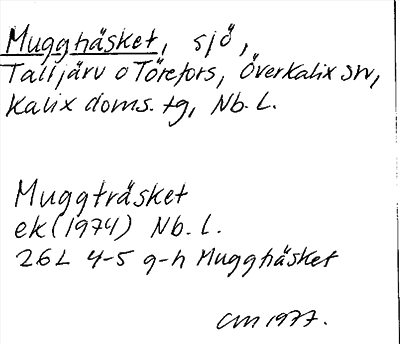 Mugghäsket, sjö,
Talljärv o Törefors, Överkalix sn,
Kalix doms. tg, Nb. L.
Muggträsket
ek (1974) Nb. l.
26L 4-5 g-h Mugghäsket
CM 1977.